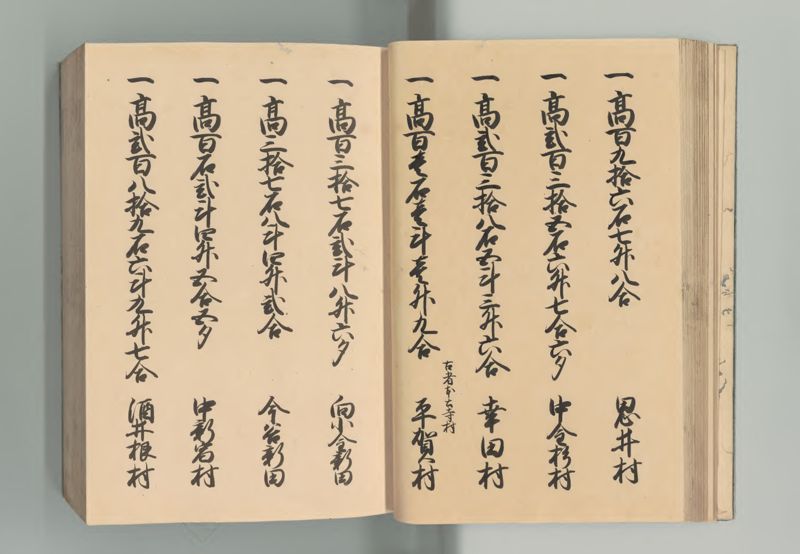 一 高百九拾六石七升八合 思井村
一 高弐百三拾五石六升七合六夕 中金杉村
一 高弐百三拾八石五斗三升六合 幸田村
一 高百壱石壱斗壱升九合 平賀村
古者本土寺村
一 高百三拾七石弐斗八升六夕 向小金新田
一 高三拾七石八斗四升弐合 今谷新田
一 高百石弐斗四升五合五夕 中新宿村
一 高弐百八拾九石六斗九升七合 酒井根村